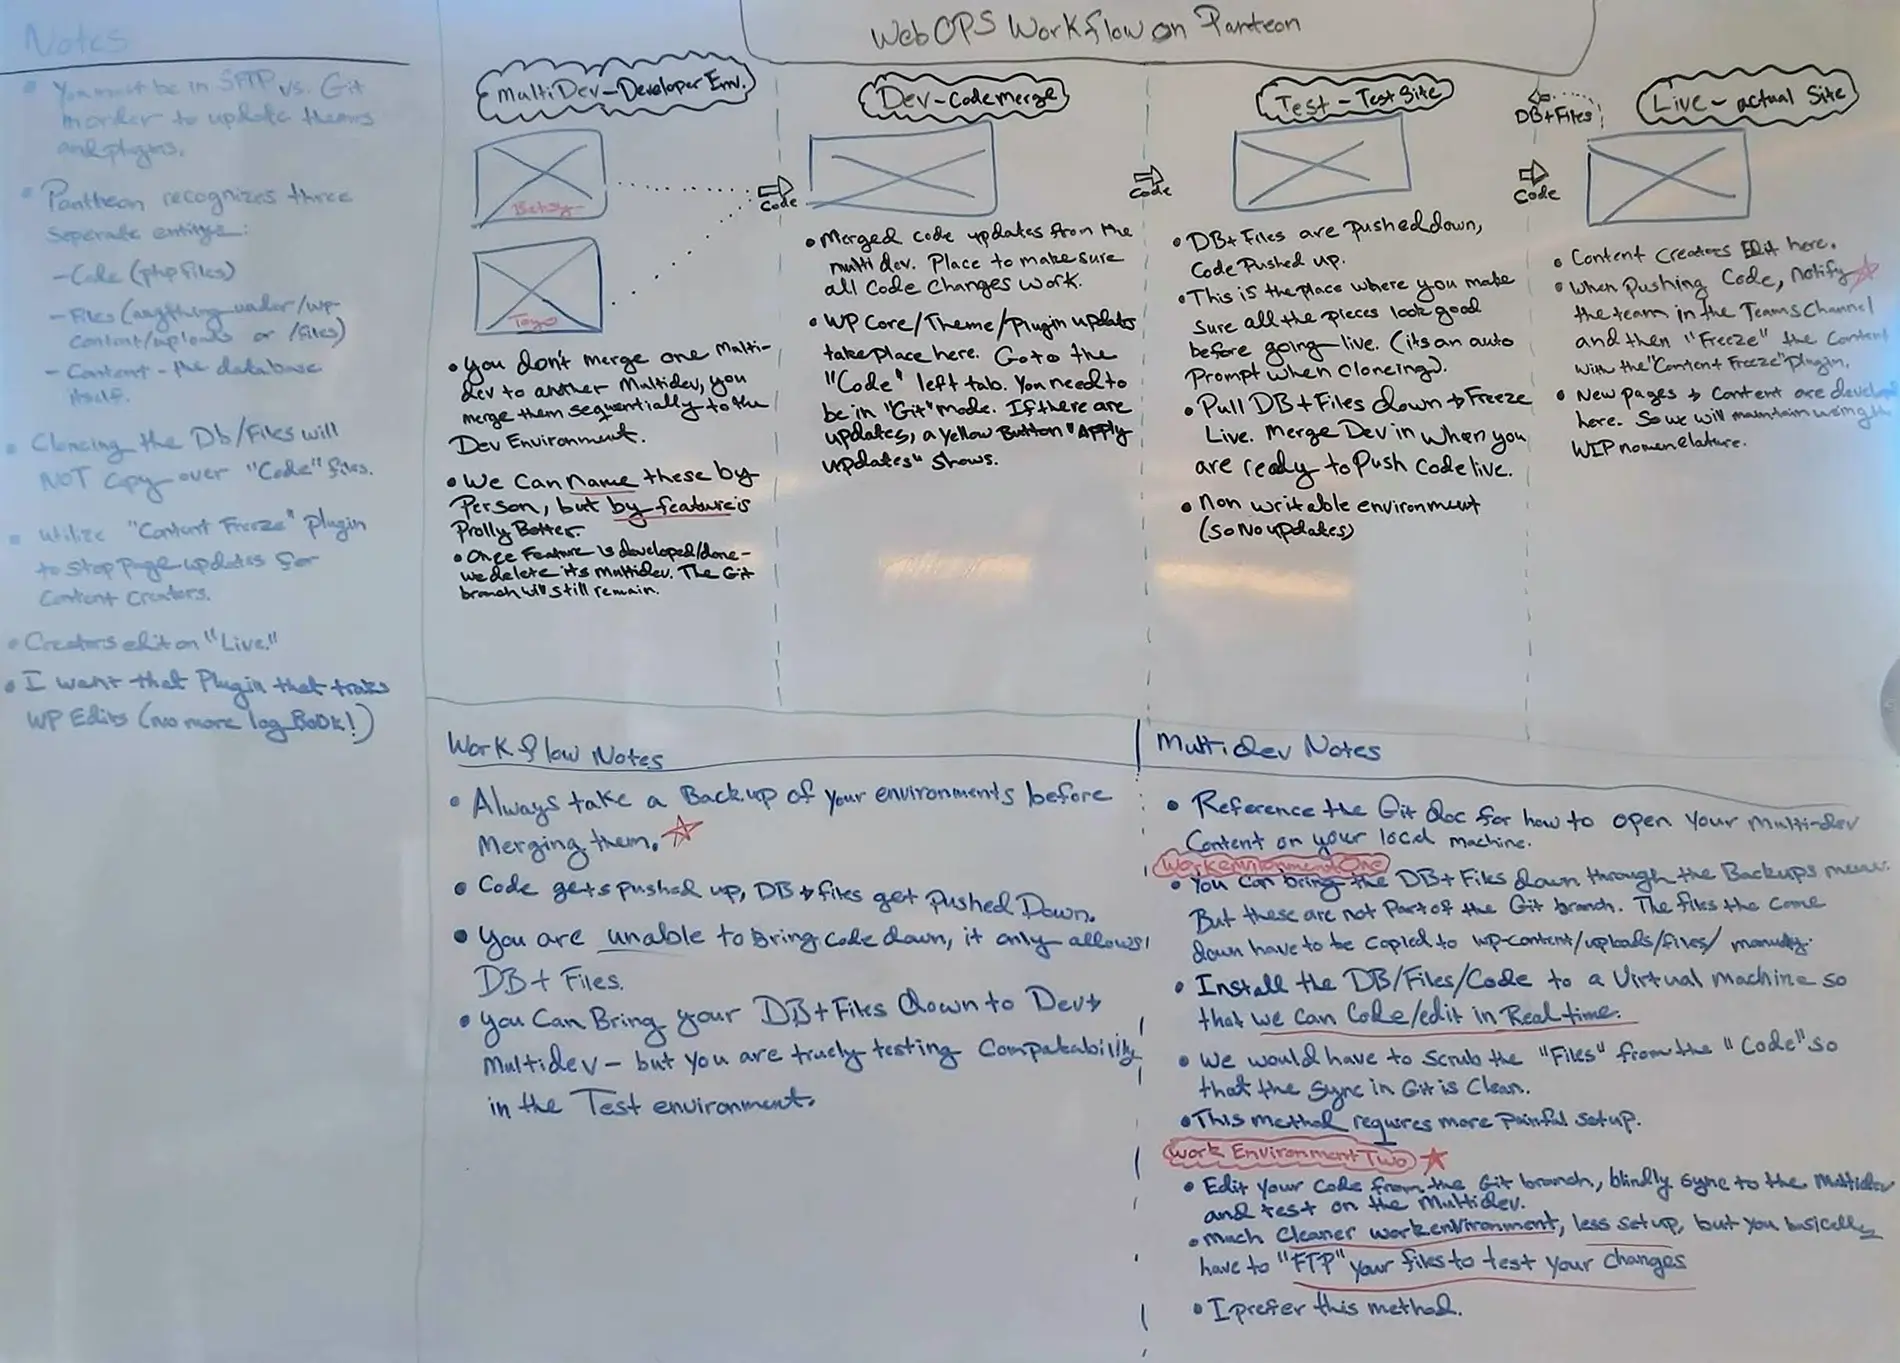 Notes
• You must be in SFTP vs. Git
in order to update themes
and plugins.
• Pantheon recognizes three
seperate entitys:
- Code (php files)
- Files (anything under /wp-
content/uploads or /files)
- Content - the database
itself.
• Cloneing the Db/Files will
NOT Copy over "Code" files.
• utilize "Content Freeze" plugin
to stop page updates for
Content Creators.
• Creators edit on "Live."
• I want that Plugin that traks
WP Edits (no more log BOOK!)
WebOPS Workflow on Panteon
MultiDev-Developer Env.
Betsy
Tayo
Code
• You don't merge one Multi-
dev to another Multidev, you
merge them sequentially to the
Dev Environment.
• We Can Name these by
Person, but by feature is
Prolly Better.
• Once Feature is developed/done-
we delete its multidev. The Git
branch will still remain.
Dev-Codemerge
Code
• Merged code updates from the
multi dev. Place to make sure
all Code Changes work.
• WP Core/Theme/Plugin updats
take place here. Go to the
"Code" left tab. You need to
be in "Git" mode. If there are
updates, a yellow Button "Apply
updates" shows.
Test-Test Site
Code
• DB+Files are pushed down,
Code Pushed up.
• This is the place where you make
sure all the pieces look good
before going live. (its an auto
Prompt when cloneing).
• Pull DB+Files down → Freeze
Live. Merge Dev in when you
are ready to Push Code live.
• Non writable environment
(so No updates)
DB+Files
Live- actual Site
• Content Creators Edit here.
• When Pushing Code, notify
the team in the Teams Channel
and then "Freeze" the Content
with the "Content Freeze" Plugin.
• New pages + Content are develo
here. So we will maintain using the
WIP nomenclature.
Workflow Notes
• Always take a Backup of your environments before
Merging them.
• Code gets pushed up, DB + files get Pushed Down.
• You are unable to bring Code down, it only allows
DB+ Files.
• You Can Bring your DB+Files down to Dev+
Multidev- but you are truely testing Compatability
in the Test environment.
Multidev Notes
• Reference the Git doc for how to open your Multi-dev
Content on your local machine.
Work environment One
• You Can bring the DB+ Files down through the Backups menu.
But these are not Part of the Git branch. The files the come
down have to be Copied to wp-content/uploads/files/ manualy.
• Install the DB/Files/Code to a Virtual Machine so
that we can Code/edit in Real time.
• We would have to scrub the "Files" from the "Code" so
that the Sync in Git is Clean.
• This method requires more painful setup.
Work Environment Two
• Edit your Code from the Git branch, blindly sync to the Multidev
and test on the Multidev.
• Much Cleaner work environment, less setup, but you basically
have to "FTP" your files to test your changes
• I prefer this method.